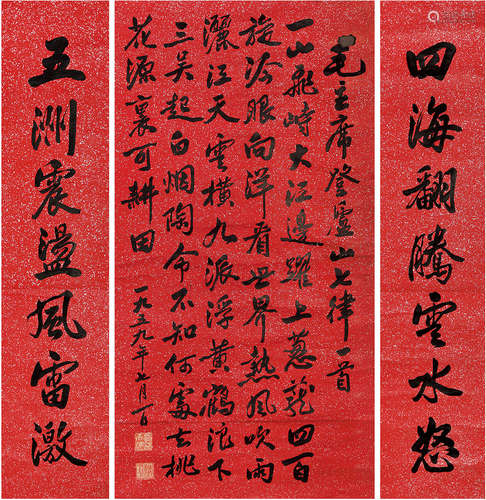 四海翻騰雲水怒
毛主席登廬山七律一首
一山飛峙大江邊躍上蔥蘢四百
旋冷眼向洋看世界熱風吹雨
灑江天雲橫九派浮黃鶴浪下
三吳起白烟陶令不知何處去桃
花源裏可耕田 一九五九年七月一日
五洲震盪風雷激